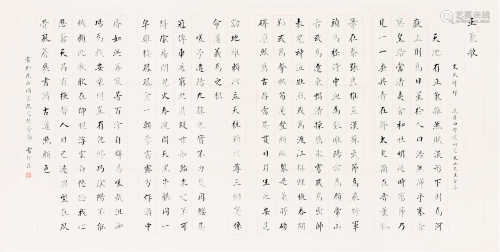 正氣歌
文天祥
天地有正氣雜然賦流形下則為河
嶽上則為日星於人曰浩然沛乎塞蒼
冥皇路當清夷含和吐明庭時窮節乃
見一一垂丹青在齊太史簡在晉董狐
筆在秦張良椎在漢蘇武節為嚴將軍
頭為嵇侍中血為張睢陽齒為顏常山
舌或為遼東帽清操厲冰雪或為出師
表鬼神泣壯烈或為渡江楫慷慨吞胡
羯或為擊賊笏逆豎頭破裂是氣所磅
礴凜烈萬古存當其貫日月生死安足
論地維賴以立天柱賴以尊三綱實係
命道義為之根
嗟予遘陽九隸也實不力楚囚纓其
冠傳車送窮北鼎鑊甘如飴求之不可
得陰房闃鬼火春院閟天黑牛驥同一
皂雞棲鳳凰食一朝蒙霧露分作溝中
瘠如此再寒暑百沴自辟易哀哉沮洳
場為我安樂國豈有他繆巧陰陽不能
賊顧此耿耿在仰視浮雲白悠悠我心
悲蒼天曷有極哲人日已遠典型在夙
昔風簷展書讀古道照顏色